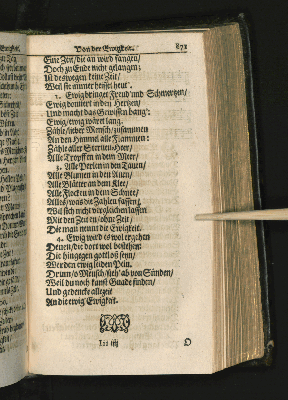 Von der Ewigkeit. 871
Eine Zeit/ die an wird fangen/
Doch zu Ende nicht gelangen;
Ist deswegen keine Zeit/
Weil sie immer heisset heut'.
2. Ewig bringet Freud und Schmertzen/
Ewig donnert in den Hertzen/
Und macht das Gewissen bang':
Ewig/ ewig wäret lang.
Zähle/ lieber Mensch/ zusammen
An den Himmel alle Flammen:
Zähle aller Sternen-Heer/
Alle Tropffen in dem Meer/
3. Alle Perlen in den Tauen/
Alle Blumen in den Auen/
Alle Blätter in dem Klee/
Alle Flocken in dem Schnee/
Alles/ was die Zahlen fassen;
Wil sich nicht vergleichen lassen
Mit den Zeiten/ ohne Zeit/
Die man nennt die Ewigkeit.
4. Ewig wird es wol ergehen
Denen/ die dort wol bestehen:
Die hingegen gottloß seyn/
Werden ewig leiden Pein.
Drum/ o Mensch/ steh' ab von Sünden/
Weil du noch kanst Gnade finden/
Und gedencke allezeit
An die ewig' Ewigkeit.
O